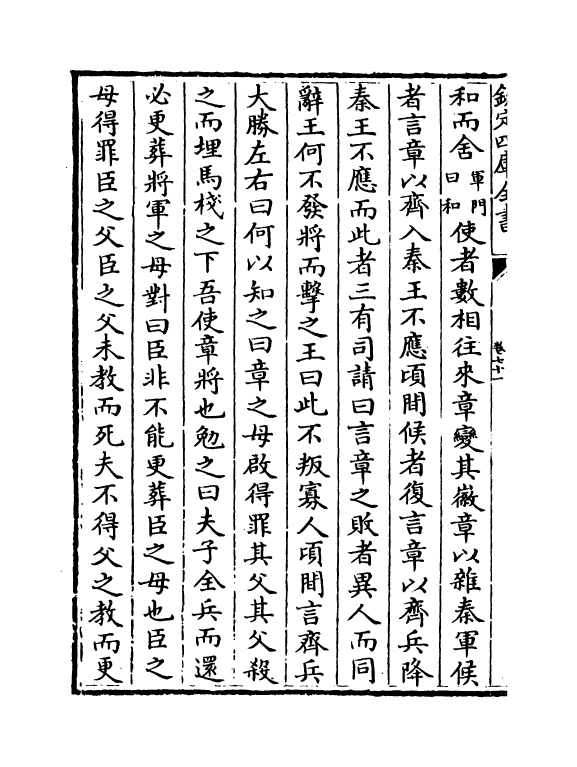 欽定四庫全書
卷七十一
和而舍軍門曰和使者數相往來章變其徽章以雜秦軍候
者言章以齊入秦王不應頃間候者復言章以齊兵降
秦王不應而此者三有司請曰言章之敗者異人而同
辭王何不發將而擊之王曰此不叛寡人頃間言齊兵
大勝左右曰何以知之曰章之母啟得罪其父其父殺
之而埋馬棧之下吾使章將也勉之曰夫子全兵而還
必更葬將軍之母對曰臣非不能更葬臣之母也臣之
母得罪臣之父臣之父未教而死夫不得父之教而更